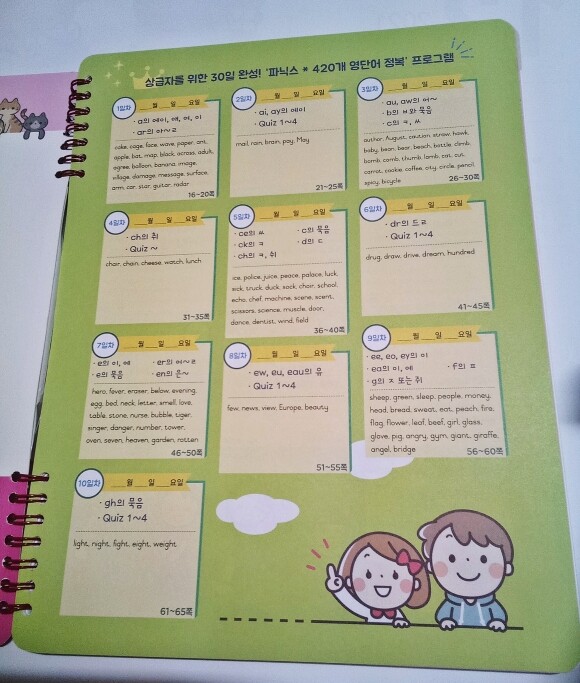 상급자를 위한 30일 완성! '파닉스 * 420개 영단어 정복' 프로그램
1일차 __월 __일 __요일
· a의 에이, 애, 어, 이
· ar의 아~ㄹ
cake, cage, face, wave, paper, ant,
apple, bat, map, black, across, adult,
agree, balloon, banana, image,
village, damage, message, surface,
arm, car, star, guitar, radar
16~20쪽
2일차 __월 __일 __요일
· ai, ay의 에이
· Quiz 1~4
mail, rain, brain, pay, May
21~25쪽
3일차 __월 __일 __요일
· au, aw의 어~
· b의 ㅂ와 묵음
· c의 ㅋ, ㅆ
author, August, caution, straw, hawk,
baby, bean, bear, beach, bottle, climb,
bomb, comb, thumb, lamb, cat, cut,
carrot, cookie, coffee, city, circle, pencil,
spicy, bicycle
26~30쪽
4일차 __월 __일 __요일
· ch의 취
· Quiz ~
chair, chain, cheese, watch, lunch
31~35쪽
5일차 __월 __일 __요일
· ce의 ㅆ · c의 묵음
· ck의 ㅋ · d의 ㄷ
· ch의 ㅋ, 쉬
ice, police, juice, peace, palace, luck,
sick, truck, duck, sock, choir, school,
echo, chef, machine, scene, scent,
scissors, science, muscle, door,
dance, dentist, wind, field
36~40쪽
6일차 __월 __일 __요일
· dr의 드ㄹ
· Quiz 1~4
drug, draw, drive, dream, hundred
41~45쪽
7일차 __월 __일 __요일
· e의 이, 에 · er의 어~ㄹ
· e의 묵음 · en의 은~
hero, fever, eraser, below, evening,
egg, bed, neck, letter, smell, love,
table, stone, nurse, bubble, tiger,
singer, danger, number, tower,
oven, seven, heaven, garden, rotten
46~50쪽
8일차 __월 __일 __요일
· ew, eu, eau의 유
· Quiz 1~4
few, news, view, Europe, beauty
51~55쪽
9일차 __월 __일 __요일
· ee, eo, ey의 이
· ea의 이, 에 · f의 ㅍ
· g의 ㅈ 또는 쥐
sheep, green, sleep, people, money,
head, bread, sweat, eat, peach, fire,
flag, flower, leaf, beef, girl, glass,
glove, pig, angry, gym, giant, giraffe,
angel, bridge
56~60쪽
10일차 __월 __일 __요일
· gh의 묵음
· Quiz 1~4
light, night, fight, eight, weight
61~65쪽